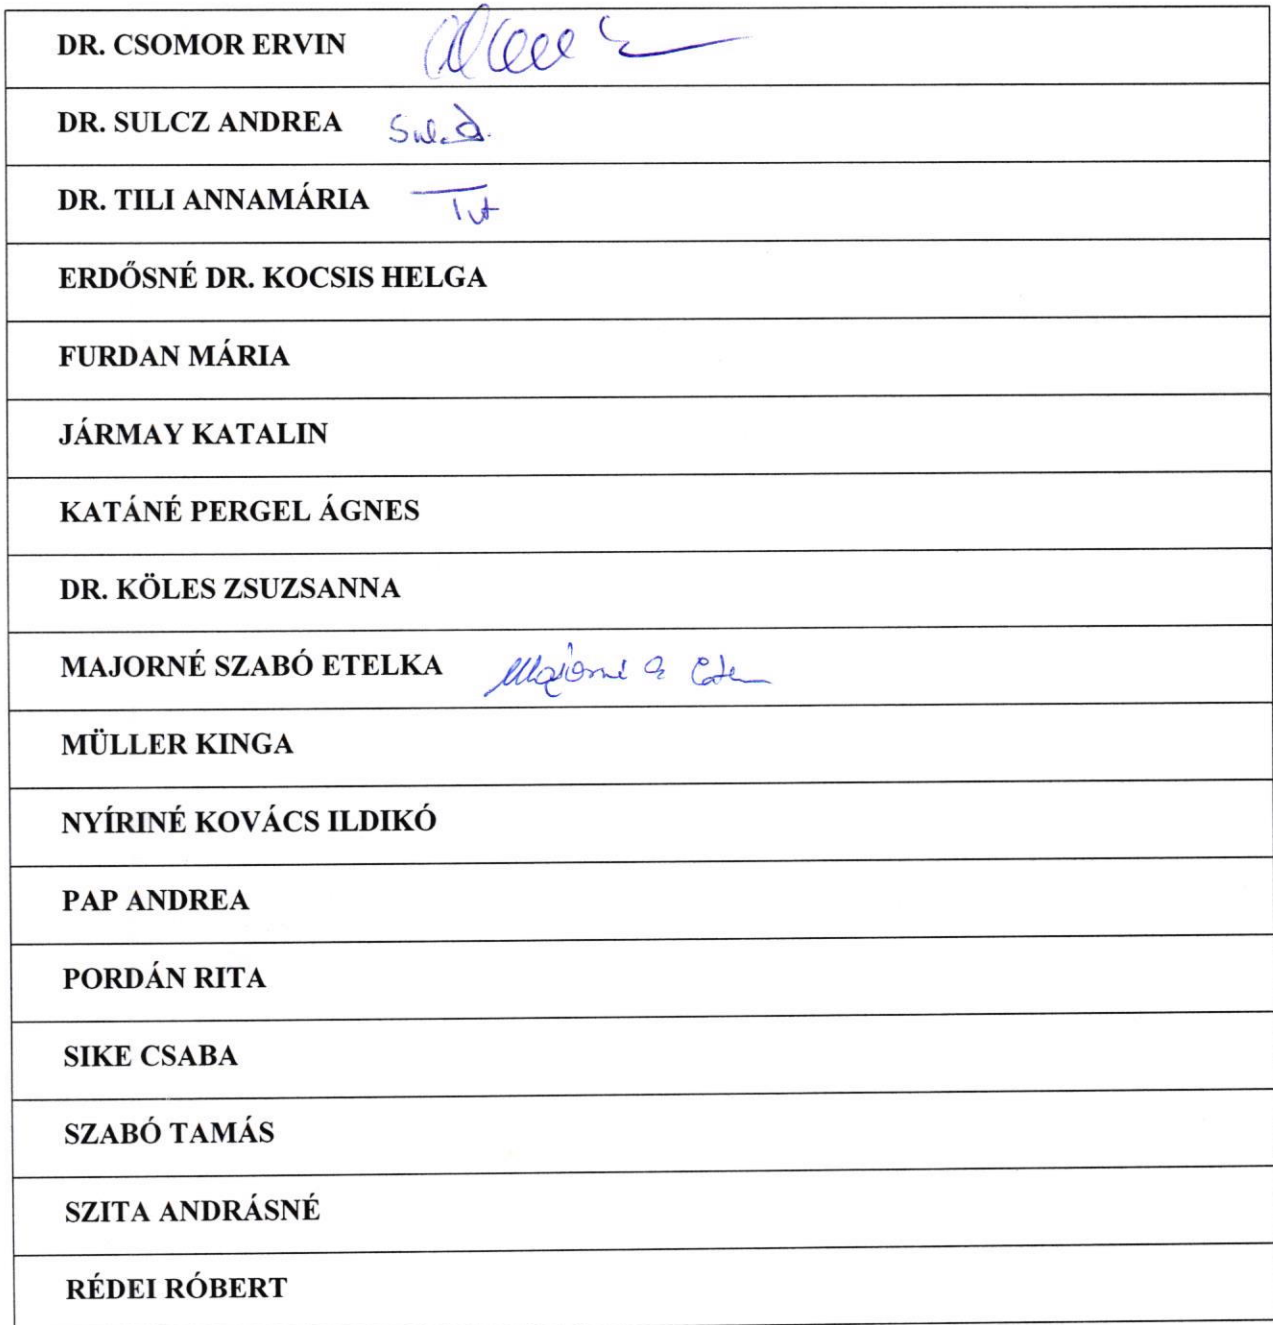 DR. CSOMOR ERVIN
DR. SULCZ ANDREA
DR. TILI ANNAMÁRIA
ERDŐSNÉ DR. KOCSIS HELGA
FURDAN MÁRIA
JÁRMAY KATALIN
KATÁNÉ PERGEL ÁGNES
DR. KÖLES ZSUZSANNA
MAJORNÉ SZABÓ ETELKA
MÜLLER KINGA
NYÍRINÉ KOVÁCS ILDIKÓ
PAP ANDREA
PORDÁN RITA
SIKE CSABA
SZABÓ TAMÁS
SZITA ANDRÁSNÉ
RÉDEI RÓBERT